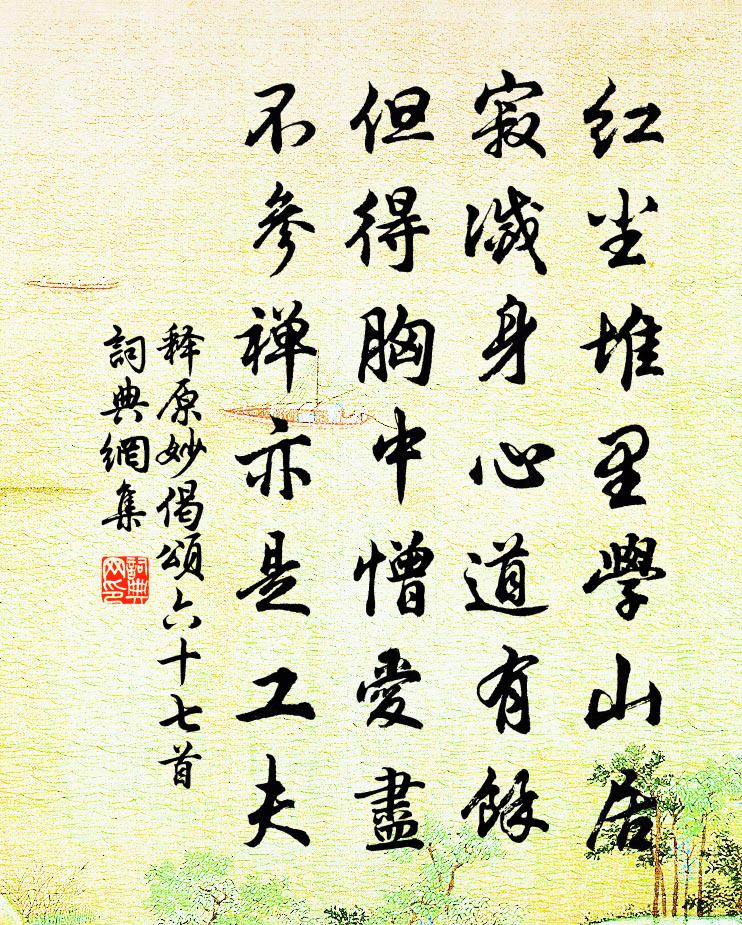 红尘堆里學山居
寂滅身心道有餘
但得胸中憎愛盡
不參禅亦是工夫
释原妙偈頌六十七首
詞典網集
詞典网印